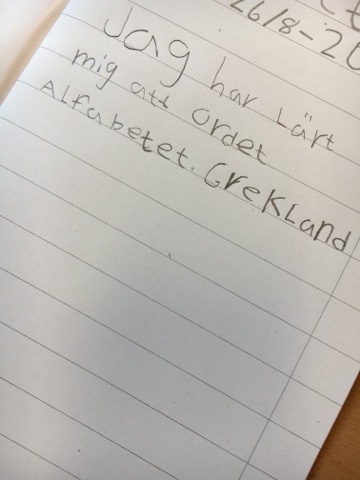 26/8-20
Jag har Lärt
mig att ordet
Alfabetet. Grekland